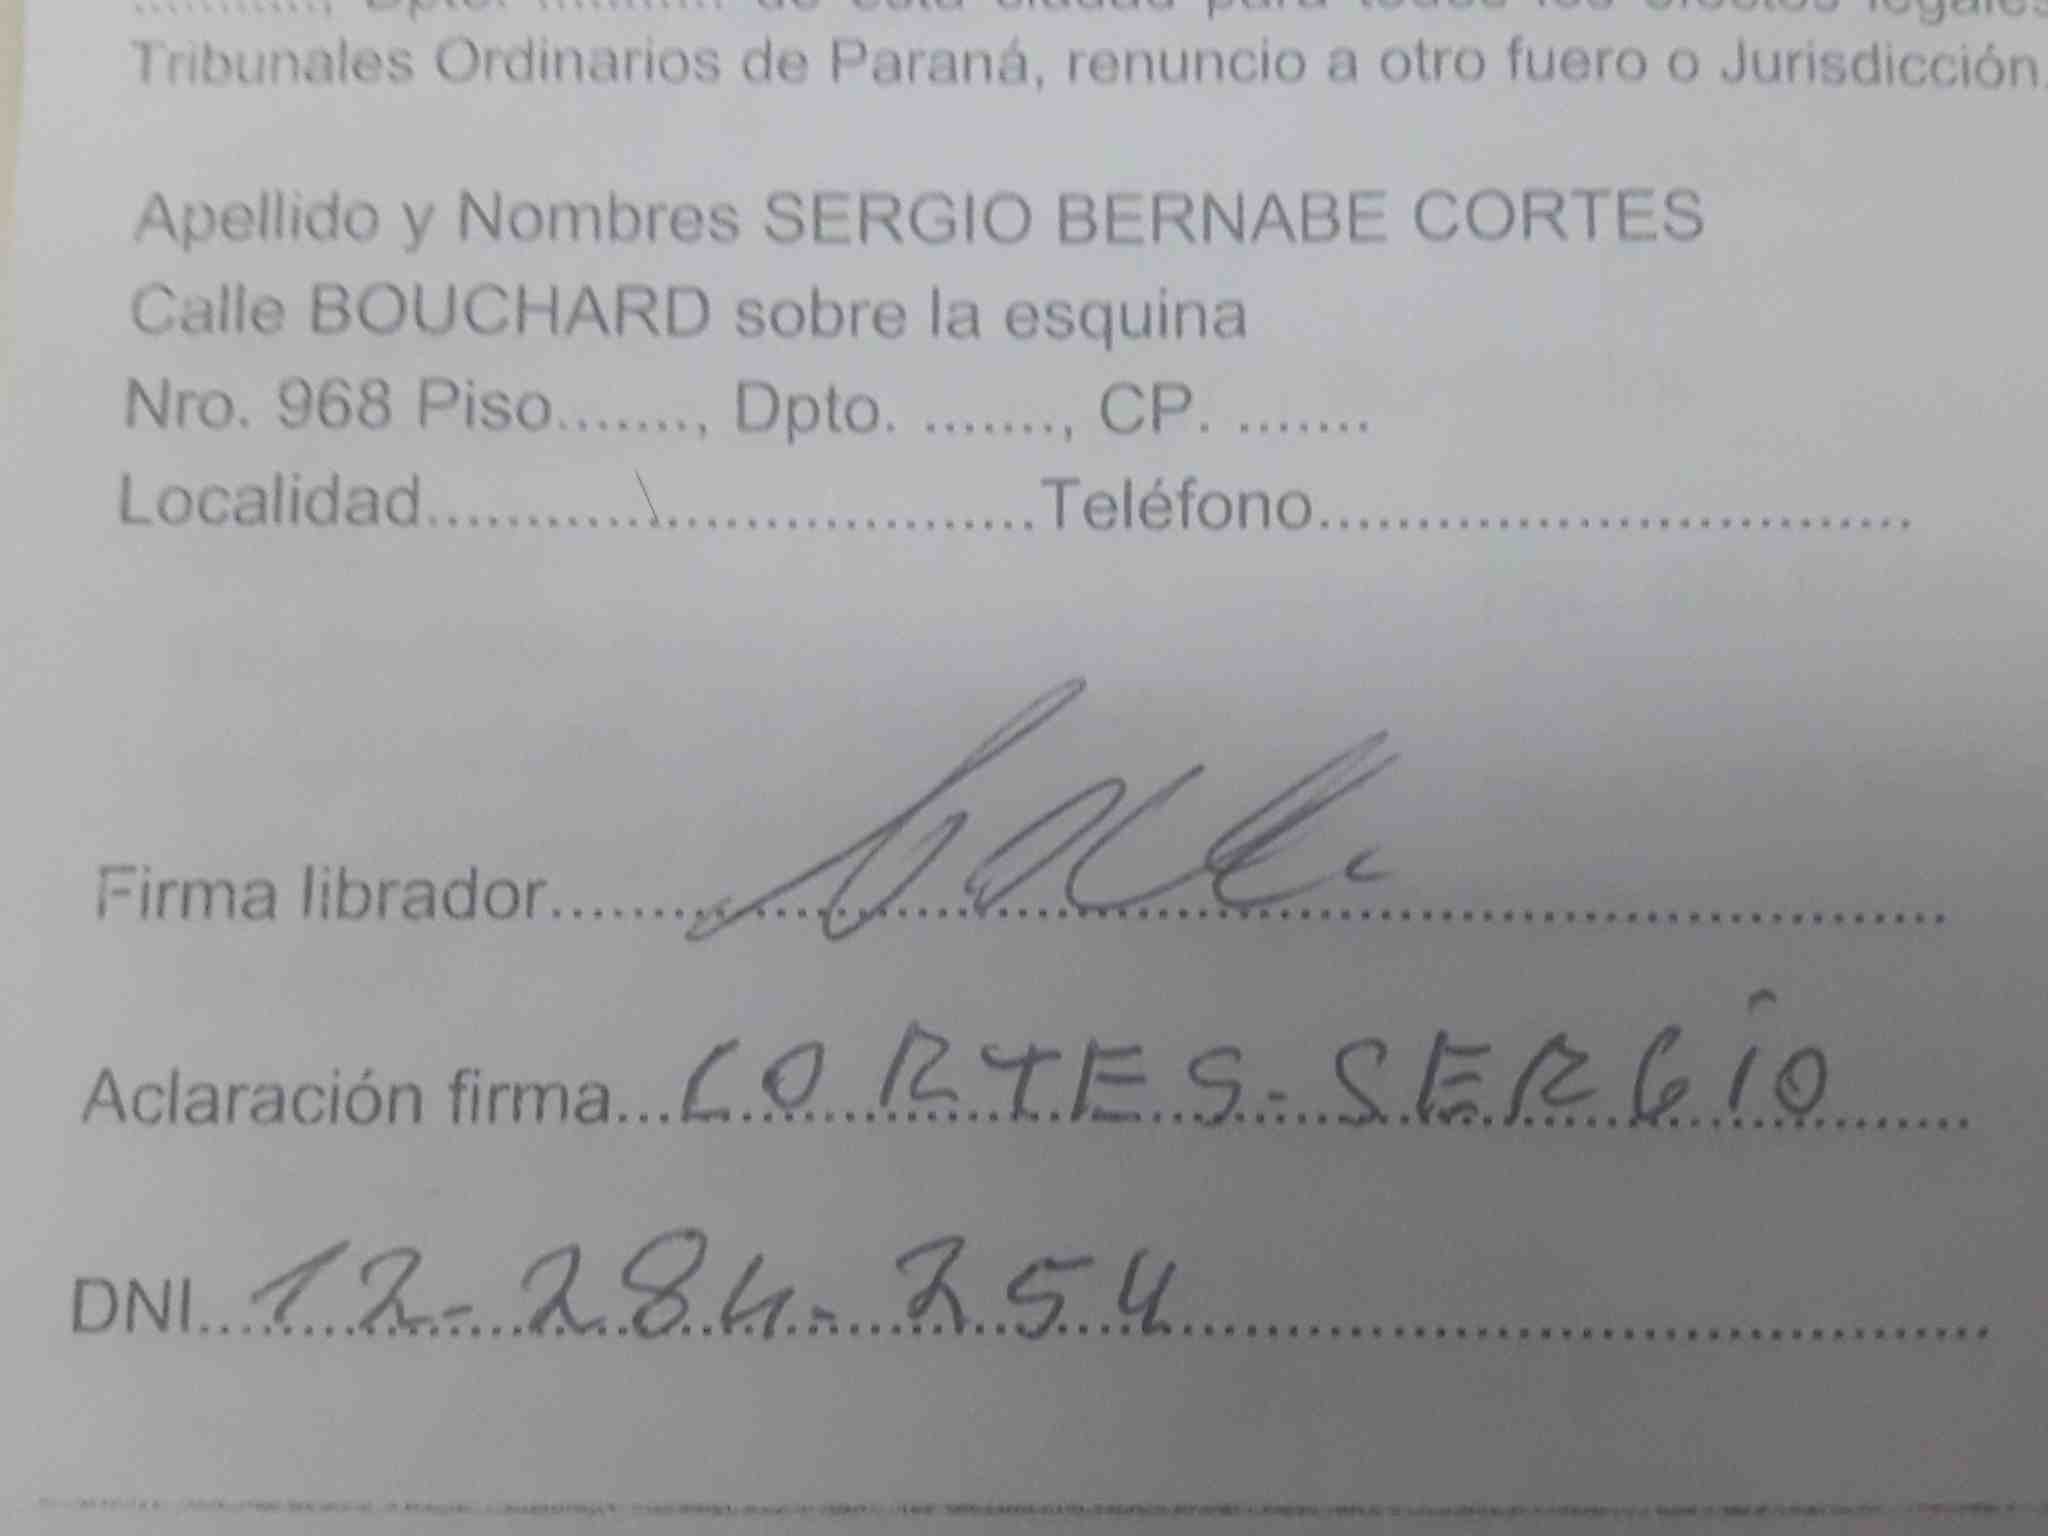 ..........., Dpto. .......... de esta ciudad para todos los efectos legales
Tribunales Ordinarios de Paraná, renuncio a otro fuero o Jurisdicción.
Apellido y Nombres SERGIO BERNABE CORTES
Calle BOUCHARD sobre la esquina
Nro. 968 Piso......., Dpto. ......., CP. .......
Localidad...............................Teléfono..............................
Firma librador......................................................................
Aclaración firma...CORTES-SERGIO.......
DNI...12-284-254..........................................